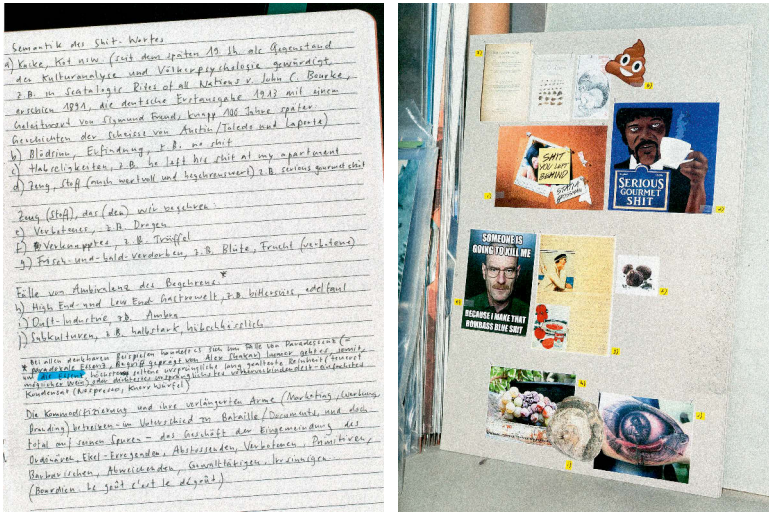 Semantik des Shit-Wortes
a) Kacke, Kot usw. (seit dem späten 19. Jh. als Gegenstand
der Kulturanalyse und Völkerpsychologie gewürdigt,
z.B. in Scatalogic Rites of all Nations v. John C. Bourke,
erschien 1891, die deutsche Erstausgabe 1913 mit einem
Geleitwort von Sigmund Freud, knapp 100 Jahre später
Geschichten der Scheisse von Austin/Toledo und Laporte)
b) Blödsinn, Erfindung, z.B. no shit
c) Habseligkeiten, z.B. he left his shit at my apartment
d) Zeug, Stoff (auch wertvoll und begehrenswert) z.B. serious gourmet shit
Zeug (Stoff), das (den) wir begehren
e) Verbotenes, z.B. Drogen
f) Verknapptes, z.B. Trüffel
g) Frisch-und-bald-verdorben, z.B. Blüte, Frucht (verbotene)
Fälle von Ambivalenz des Begehrens *
h) High End- und Low End Gastrowelt, z.B. bittersüss, edelfaul
i) Duft-Industrie, z.B. Ambra
j) Subkulturen, z.B. halbstark, hübschhässlich
* Bei allen denkbaren Beispielen handelt es sich um Fälle von Paradessenz (=
paradoxale Essenz, Begriff geprägt von Alex Shakar) Immer geht es, somit,
um die Essenz: höchstens seltene ursprüngliche lang gealterte Reinheit (teuerst
möglicher Wein) oder
Kondensat (Nespresso, Knorrwürfel)
Die Kommodifizierung und ihre verlängerten Arme (Marketing, Werbung,
Branding) betreiben – im Unterschied zu Bataille/Documents, und doch
total auf seinen Spuren – das Geschäft der Eingemeindung des
Ordinären, Ekel-Erregenden, Abstossenden, Verbotenen, Primitiven,
Barbarischen, Abweichenden, Gewalttätigen, Irrsinnigen
(Bourdieu: le goût c'est le dégoût)
SHIT
YOU LEFT
BEHIND
SERIOUS
GOURMET
SHIT
SOMEONE IS
GOING TO KILL ME
BECAUSE I MAKE THAT
BOMBASS BLUE SHIT